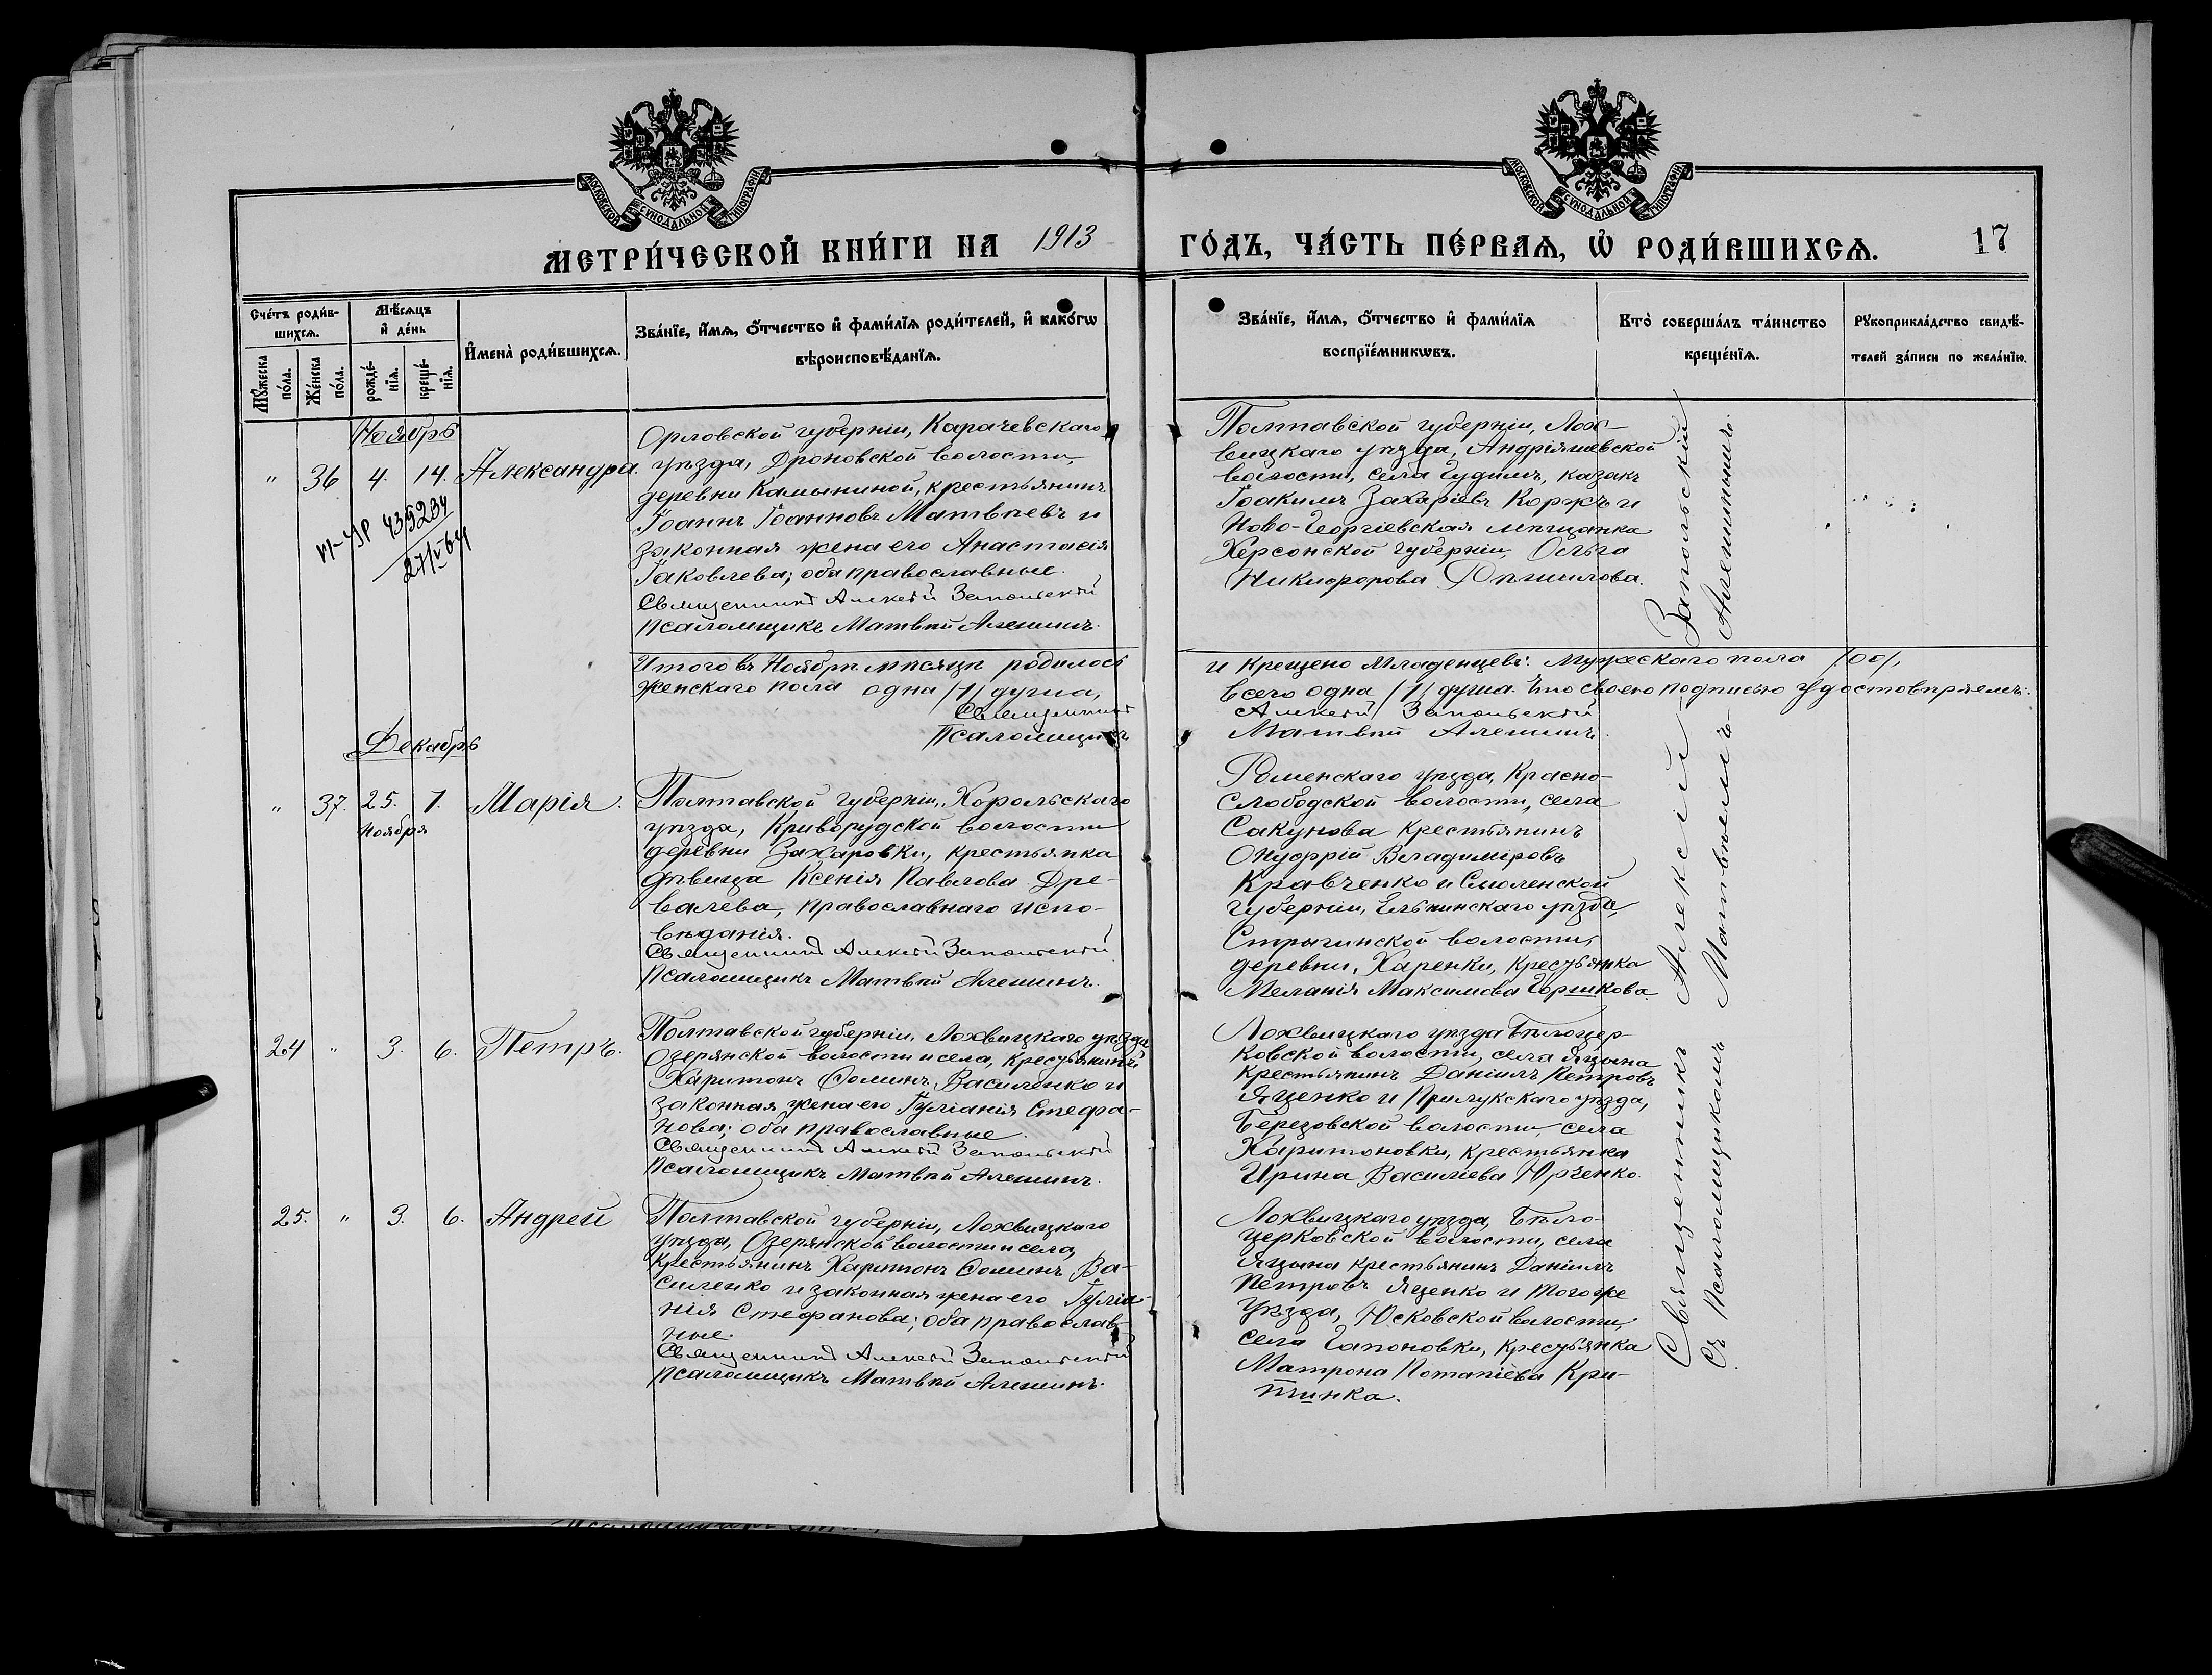 МОСКОВСКОЙ СѴНОДАЛЬНОЙ ТИПОГРАФІИ
МОСКОВСКОЙ СѴНОДАЛЬНОЙ ТИПОГРАФІИ
МЕТРИ́ЧЕСКОЙ КНИ́ГИ НА 1913
ГО́ДЪ, ЧА́СТЬ ПЕ́РВАѦ, Ѡ҆ РОДИ́ВШИХСѦ. 17
Сче́тъ роди́в-
шихсѧ.
Мꙋ́жеска по́ла.
Же́нска по́ла.
Мѣ́сѧцъ и҆ де́нь
рожде́-нїѧ.
креще́-нїѧ.
И҆мена̀ роди́вшихсѧ.
Зва́нїе, и҆́мѧ, ѻ҆́тчество и҆ фами́лїѧ роди́телей, и҆ како́гѡ
вѣроисповѣ́данїѧ.
Зва́нїе, и҆́мѧ, ѻ҆́тчество и҆ фами́лїѧ
воспрїе́мникѡвъ.
Кто̀ соверша́лъ та́инство
креще́нїѧ.
Рꙋкоприкла́дство свидѣ́-
телей за́писи по жела́нїю.
Ноябрь
" 36 4. 14. Александра.
439234
27/V 64
Орловской губерніи, Карачевскаго
уѣзда, Дроновской волости,
деревни Камыниной, крестьянинъ
Іоаннъ Іоанновъ Матвѣевъ и
законная жена его Анастасія
Іаковлева; оба православные.
Священникъ Алексѣй Запольскій
Псаломщикъ Матвѣй Алешинъ.
Полтавской губерніи, Лох-
вицкаго уѣзда, Андріяшевской
волости, села Гудимъ, казакъ
Іоакимъ Захаріевъ Коржъ и
Ново-Георгіевская мѣщанка
Херсонской губерніи, Ольга
Никифорова
Итого въ Ноябрѣ мѣсяцѣ родилось
женскаго пола одна /1/ душа,
Священникъ
Псаломщикъ
и крещено младенцевъ: мужескаго пола /00/,
всего одна /1/ душа. Что своею подписью удостовѣряемъ:
Алексѣй Запольскій
Матвѣй Алешинъ.
Декабрь
" 37. 25. 1. Марія.
Ноября
Полтавской губерніи, Хорольскаго
уѣзда, Криворудской волости
деревни Захаровки, крестьянка
дѣвица Ксенія Павлова Дре-
валева, православнаго испо-
вѣданія.
Священникъ Алексѣй Запольскій
Псаломщикъ Матвѣй Алешинъ.
Роменскаго уѣзда, Красно-
слободской волости, села
Сакунова крестьянинъ
Онуфрій Владиміровъ
Кравченко и Смоленской
губерніи, Ельнинскаго уѣзда,
Стригинской волости,
деревни, Харенки, крестьянка
Меланія Максимова Горшкова.
24 " 3. 6. Петръ.
Полтавской губерніи, Лохвицкаго уѣзда
Озерянской волости и села, крестьянинъ
Харитонъ Ѳоминъ Василенко и
законная жена его Іуліанія Стефа-
нова; оба православные.
Священникъ Алексѣй Запольскій
Псаломщикъ Матвѣй Алешинъ.
Лохвицкаго уѣзда Бѣлоцер-
ковской волости, села Яцына
крестьянинъ Даніилъ Петровъ
Яценко и Прилукскаго уѣзда,
Березовской волости, села
Харитоновки, крестьянка
Ирина Василіева Юрченко.
25. " 3. 6. Андрей
Полтавской губерніи, Лохвицкаго
уѣзда, Озерянской волости и села,
крестьянинъ Харитонъ Ѳоминъ Ва-
силенко и законная жена его Іуліа-
нія Стефанова; оба православ-
ные.
Священникъ Алексѣй Запольскій
Псаломщикъ Матвѣй Алешинъ.
Лохвицкаго уѣзда, Бѣло-
церковской волости, села
Яцына крестьянинъ Даніилъ
Петровъ Яценко и того же
уѣзда, Юсковской волости,
села Гапоновки, крестьянка
Матрона Потапіева Кри-
тинка.
Священникъ Алексій Запольскій
Съ Псаломщикомъ Матвѣемъ Алешинымъ.